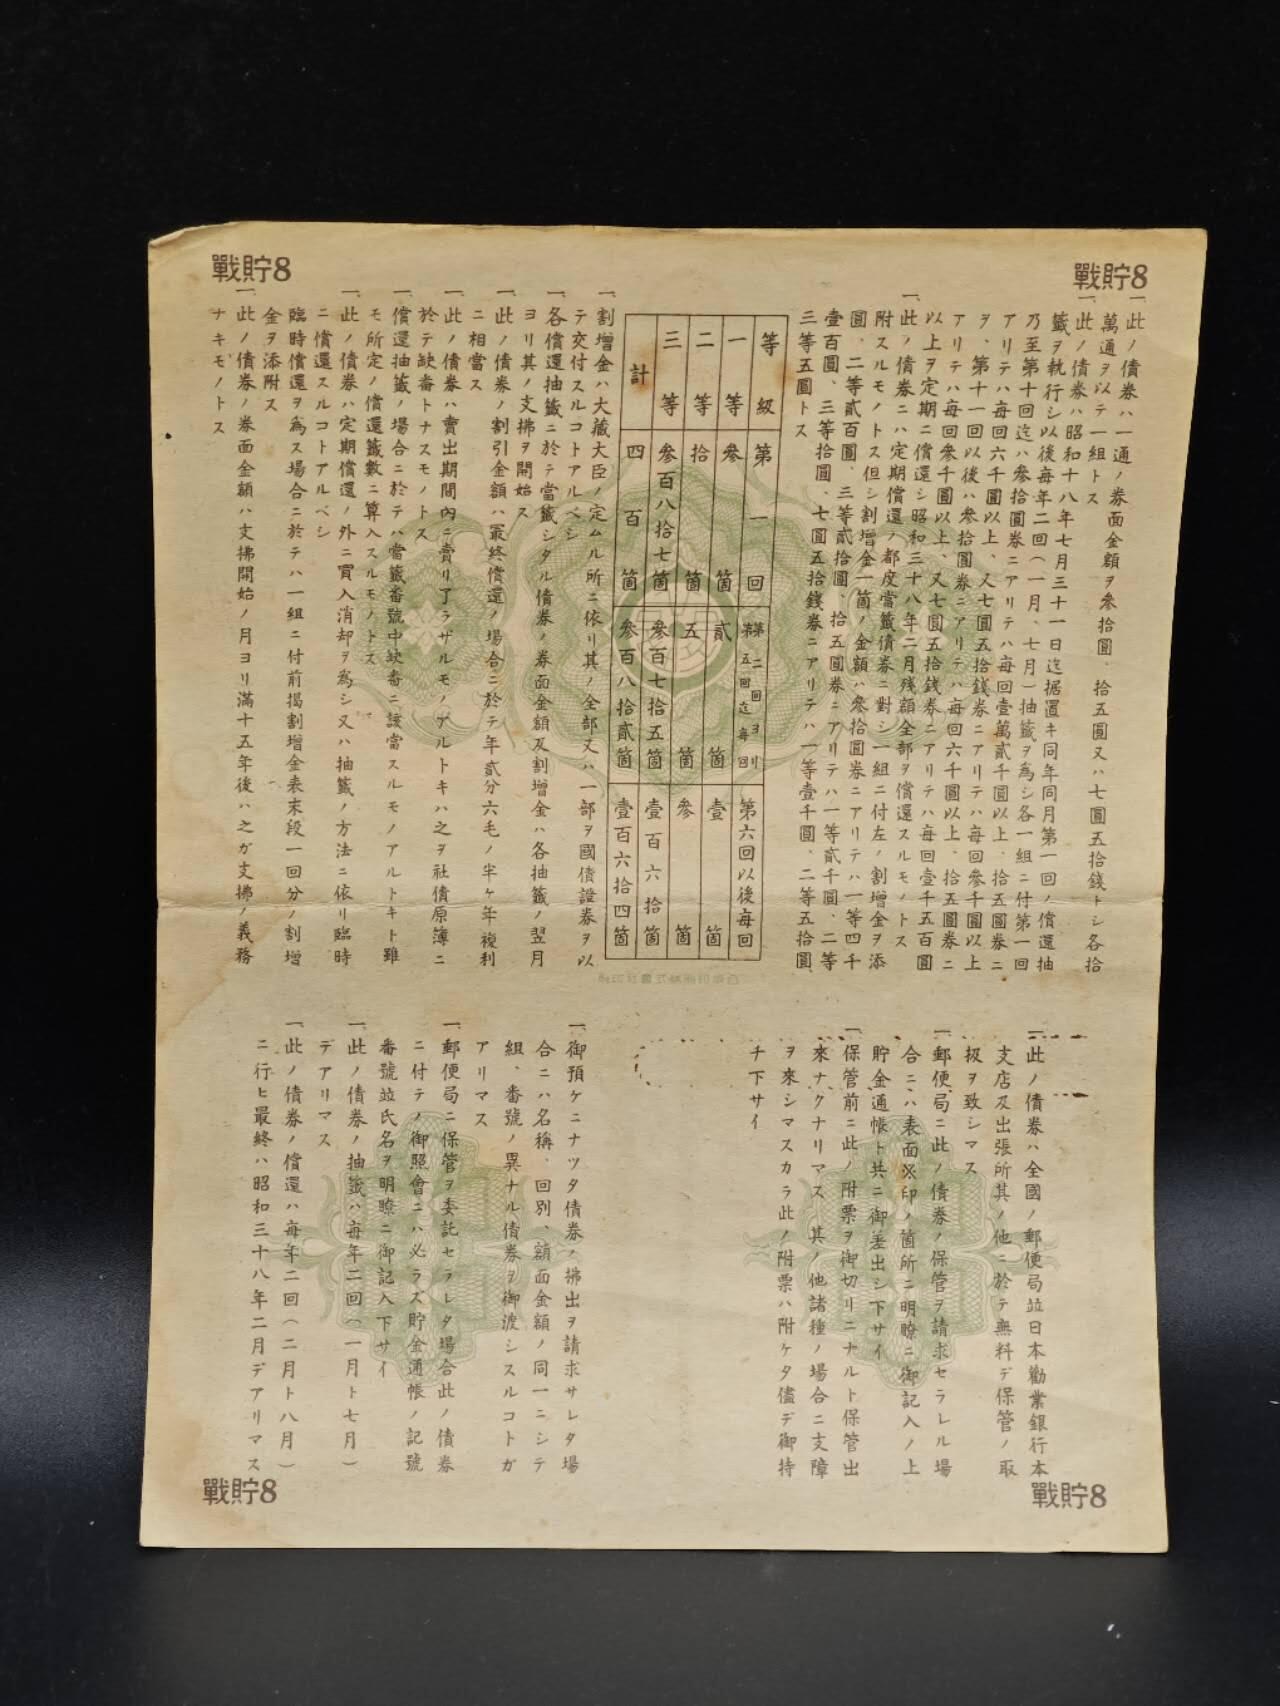 戰貯8
戰貯8
一、此ノ債券ハ一通ノ券面金額ヲ參拾圓、拾五圓又ハ七圓五拾錢トシ各拾
萬通ヲ以テ一組トス
一、此ノ債券ハ昭和十八年七月三十一日迄据置キ同年同月第一回ノ償還抽
籤ヲ執行シ以後每年二回(一月、七月)抽籤ヲ爲シ各一組ニ付第一回
乃至第十回迄ハ參拾圓券ニアリテハ每回壹萬貳千圓以上、拾五圓券ニ
アリテハ每回六千圓以上、又七圓五拾錢券ニアリテハ每回參千圓以上
ヲ、第十一回以後ハ參拾圓券ニアリテハ每回六千圓以上、拾五圓券ニ
アリテハ每回參千圓以上、又七圓五拾錢券ニアリテハ每回壹千五百圓
以上ヲ定期ニ償還シ昭和三十八年二月殘額全部ヲ償還スルモノトス
一、此ノ債券ニハ定期償還ノ都度當籤債券ニ對シ一組ニ付左ノ割增金ヲ添
附スルモノトス但シ割增金一箇ノ金額ハ參拾圓券ニアリテハ一等四千
圓、二等貳百圓、三等貳拾圓、拾五圓券ニアリテハ一等貳千圓、二等
壹百圓、三等拾圓、七圓五拾錢券ニアリテハ一等壹千圓、二等五拾圓、
三等五圓トス
等級 第一回 第二回ヨリ第五回迄每回 第六回以後每回
一等 參箇 貳箇 壹箇
二等 拾箇 五箇 參箇
三等 參百八拾七箇 參百七拾五箇 壹百六拾箇
計 四百箇 參百八拾貳箇 壹百六拾四箇
一、割增金ハ大藏大臣ノ定ムル所ニ依リ其ノ全部又ハ一部ヲ國債證券ヲ以
テ交付スルコトアルベシ
一、各償還抽籤ニ於テ當籤シタル債券ノ券面金額及割增金ハ各抽籤ノ翌月
ヨリ其ノ支拂ヲ開始ス
一、此ノ債券ノ割引金額ハ最終償還ノ場合ニ於テ年貳分六毛ノ半ケ年複利
ニ相當ス
一、此ノ債券ハ賣出期間內ニ賣リ了ラザルモノアルトキハ之ヲ社債原簿ニ
於テ缺番トナスモノトス
一、償還抽籤ノ場合ニ於テハ當籤番號中缺番ニ該當スルモノアルトキト雖
モ所定ノ償還籤數ニ算入スルモノトス
一、此ノ債券ハ定期償還ノ外ニ買入消却ヲ爲シ又ハ抽籤ノ方法ニ依リ臨時
ニ償還スルコトアルベシ
臨時償還ヲ爲ス場合ニ於テハ一組ニ付前揭割增金表末段一回分ノ割增
金ヲ添附ス
一、此ノ債券ノ券面金額ハ支拂開始ノ月ヨリ滿十五年後ハ之ガ支拂ノ義務
ナキモノトス
一、此ノ債券ハ全國ノ郵便局竝日本勸業銀行本
支店及出張所其ノ他ニ於テ無料デ保管ノ取
扱ヲ致シマス
一、郵便局ニ此ノ債券ノ保管ヲ請求セラレル場
合ニハ表面※印ノ箇所ニ明瞭ニ御記入ノ上
貯金通帳ト共ニ御差出シ下サイ
一、保管前ニ此ノ附票ヲ御切リニナルト保管出
來ナクナリマス 其ノ他諸種ノ場合ニ支障
ヲ來シマスカラ此ノ附票ハ附ケタ儘デ御持
チ下サイ
一、御預ケニナツタ債券ノ拂出ヲ請求サレタ場
合ニハ名稱、回別、額面金額ノ同一ニシテ
組、番號ノ異ナル債券ヲ御渡シスルコトガ
アリマス
一、郵便局ニ保管ヲ委託セラレタ場合此ノ債券
ニ付テノ御照會ニハ必ラズ貯金通帳ノ記號
番號竝氏名ヲ明瞭ニ御記入下サイ
一、此ノ債券ノ抽籤ハ每年二回(一月ト七月)
デアリマス
一、此ノ債券ノ償還ハ每年二回(二月ト八月)
ニ行ヒ最終ハ昭和三十八年二月デアリマス
戰貯8
戰貯8